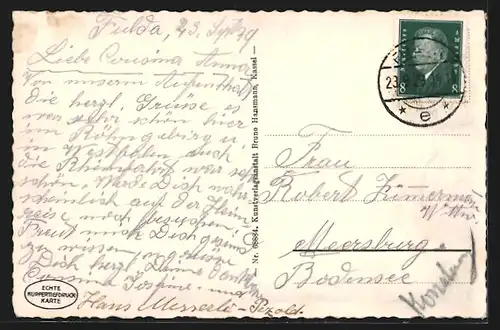 Fulda, 23. Sept. 29
Liebe Cousine Anna
Von unserm Aufenthalt
die herzl. Grüsse es
war sehr schön hier
im Röhngebirg u
in Westfalen auch
die Rheinfahrt war sehr
schön, Werde Dich wahr-
scheinlich auf der Heim-
reise noch besuchen.
Freut mich Dich gesund
zu wissen
Dich herzl. Deine dankb
Cousine u
Hans Messerle-Pezold.
ECHTE
KUPFERTIEFDRUCK
KARTE
Nr. 68884. Kunstverlagsanstalt Bruno Hansmann, Kassel —
8 8
23.
* e *
Frau
Robert Zimmermann
Meersburg
Bodensee